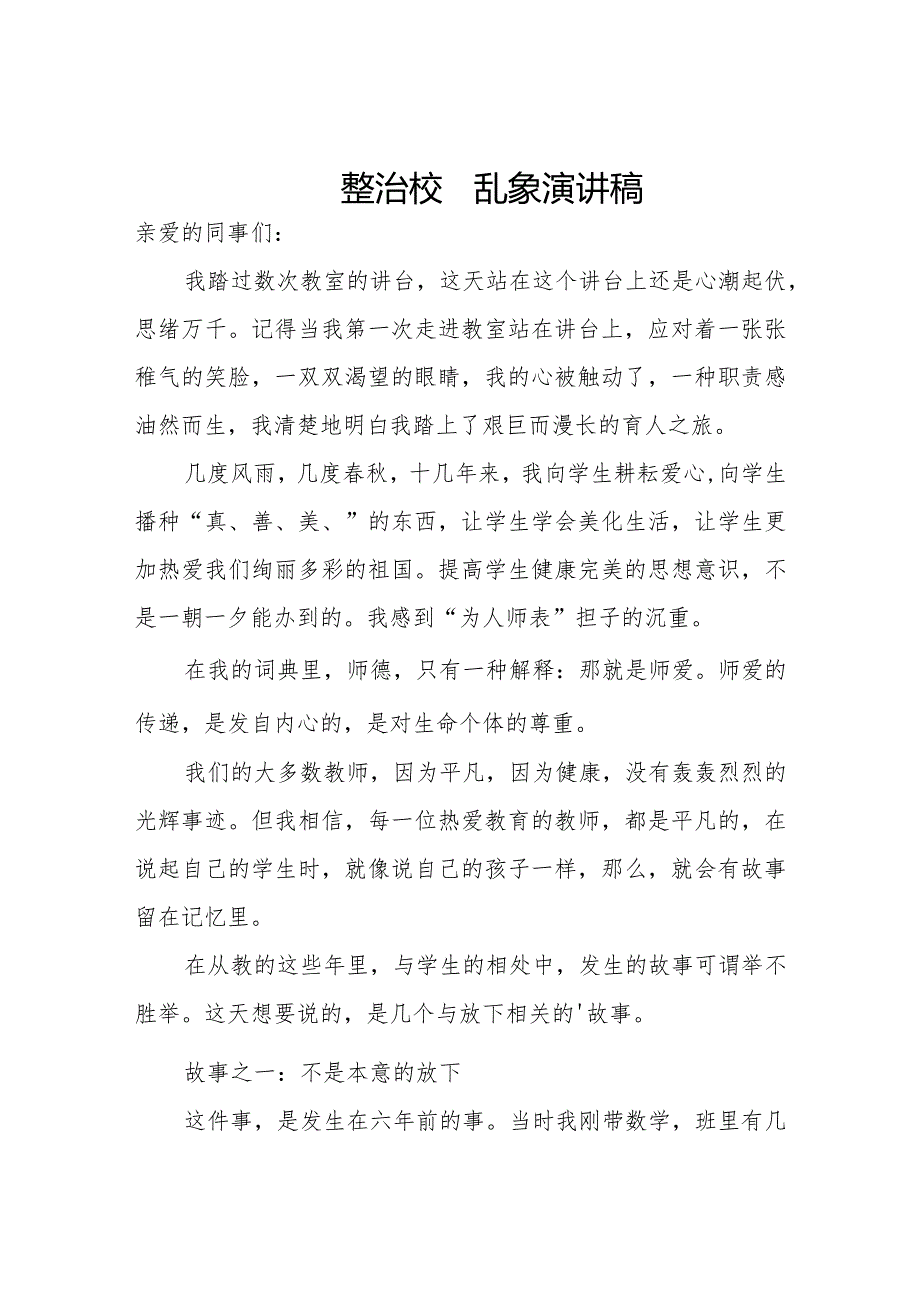 整治校 乱象演讲稿
亲爱的同事们：
我踏过数次教室的讲台，这天站在这个讲台上还是心潮起伏，
思绪万千。记得当我第一次走进教室站在讲台上，应对着一张张
稚气的笑脸，一双双渴望的眼睛，我的心被触动了，一种职责感
油然而生，我清楚地明白我踏上了艰巨而漫长的育人之旅。
几度风雨，几度春秋，十几年来，我向学生耕耘爱心,向学生
播种“真、善、美、”的东西，让学生学会美化生活，让学生更
加热爱我们绚丽多彩的祖国。提高学生健康完美的思想意识，不
是一朝一夕能办到的。我感到“为人师表”担子的沉重。
在我的词典里，师德，只有一种解释：那就是师爱。师爱的
传递，是发自内心的，是对生命个体的尊重。
我们的大多数教师，因为平凡，因为健康，没有轰轰烈烈的
光辉事迹。但我相信，每一位热爱教育的教师，都是平凡的，在
说起自己的学生时，就像说自己的孩子一样，那么，就会有故事
留在记忆里。
在从教的这些年里，与学生的相处中，发生的故事可谓举不
胜举。这天想要说的，是几个与放下相关的'故事。
故事之一：不是本意的放下
这件事，是发生在六年前的事。当时我刚带数学，班里有几